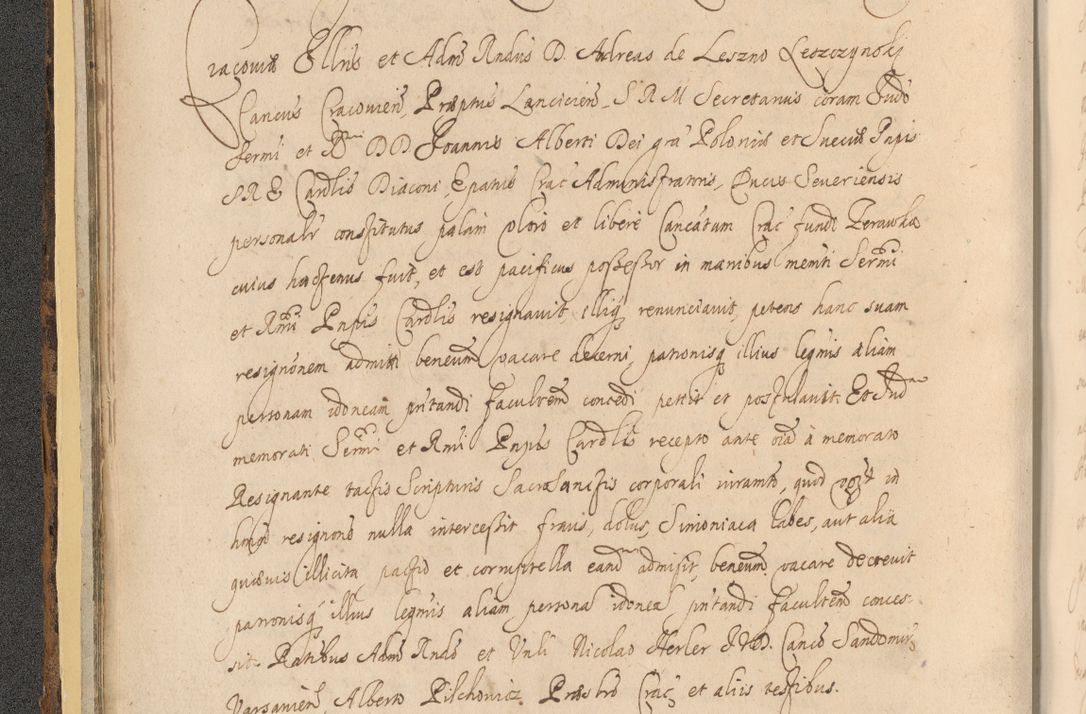 Cracoviæ Ellris et Adm Rndus D. Andreas de Leszno Leszczynski
Cancus Cracovien, Præptus Lancicien, S R M Secretarius coram Judo
Sermi et R D D Joannis Alberti Dei gra Poloniæ et Sueciæ Pnpis
S.R.E. Cardlis Diaconi, Epatus Crac Administratoris, Ducis Severiensis
personalr constitutus palam et libere Cancatum Crac fundi Zerawka
cuius hactenus fuit, et est pacificus possessor in manibus memti Sermi
et Rmi Pnpis Cardlis resignavit illiq renunciavit, petens hanc suam
resignonem admitti beneum vacare decerni, patronisq illius legmis aliam
personam idoneam pntandi facultem concedi petiit et postulavit. Et Jud
memorati Sermi et Rmi Pnpis Cardlis recepto ante oia à memorato
Resignante tactis Scripturis Sacrosanctis corporali iuramto, quod in
hmoi resignone nulla intercessit fraus, dolus, Simoniaca labes, aut alia
quævis illicita pactio et corruptella eand admisit, beneum vacare decrevit
patronisq illius legmis aliam persona idonea pntandi facultem conces-
sit. Pntibus Adm Rndo et Vnli Nicolao Herler I.V.D. Canco Sandomir,
Varsavien, Alberto Pilchowicz Præsbro Crac, et aliis testibus.